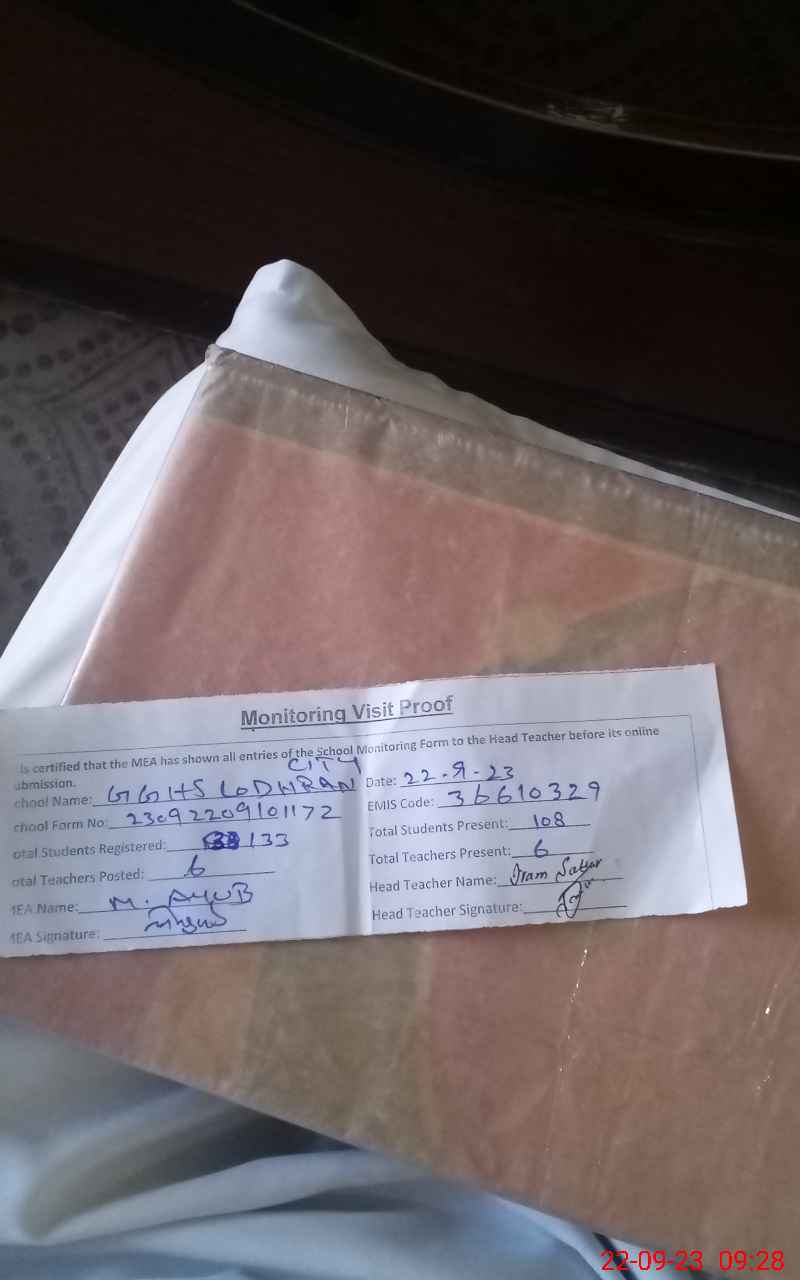 Monitoring Visit Proof
is certified that the MEA has shown all entries of the School Monitoring Form to the Head Teacher before its online
ubmission.
CITY
chool Name: GGHS LODHRAN Date: 22-9-23
chool Form No: 23092209101172 EMIS Code: 36610329
otal Students Registered: 133 Total Students Present: 108
otal Teachers Posted: 6 Total Teachers Present: 6
MEA Name: M. AYUB Head Teacher Name: Iram Sattar
MEA Signature: Head Teacher Signature:
22-09-23 09:28